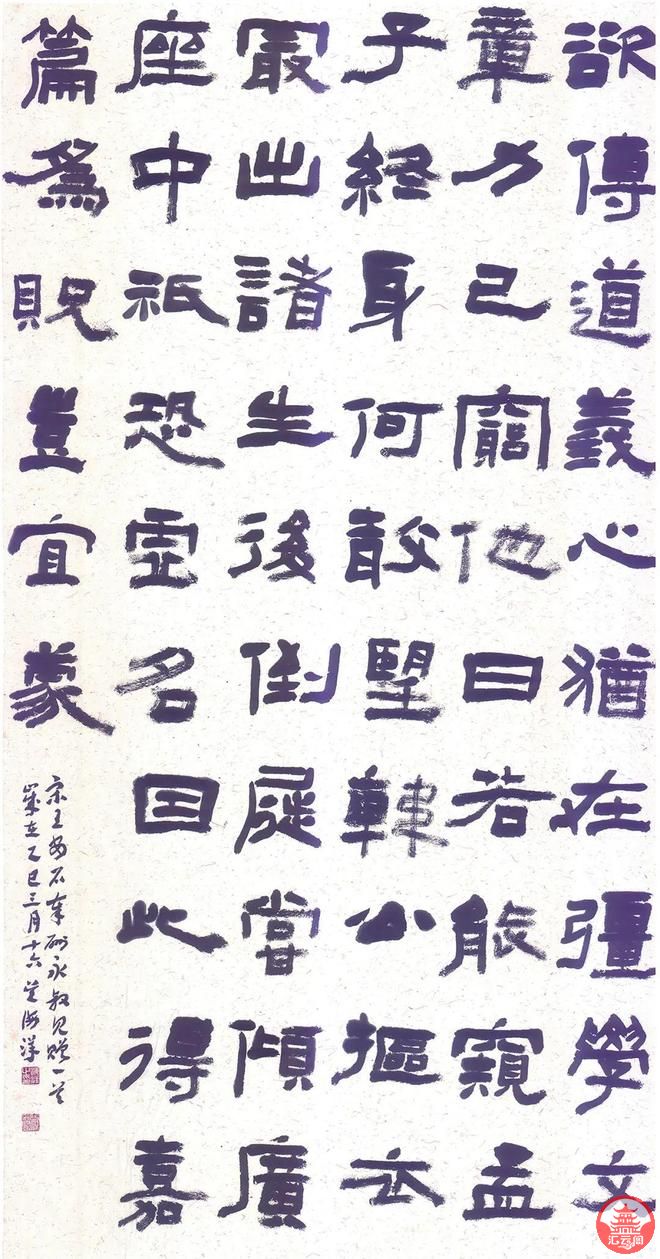 欲傳道義心猶在彊學文
章力已窮他日若能窺孟
子終身何敢望韓公摳衣
冣出諸生後倒屣嘗傾廣
座中祇恐虛名因此得嘉
篇爲貺豈宜蒙
宋王安石奉酬永叔見贈一首
歲在乙巳三月十六吴海洋
汇云阁